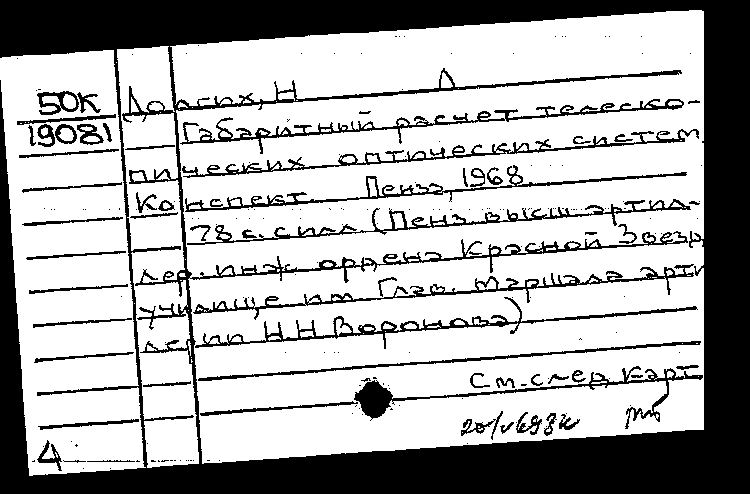 50К Долгих, Н Л
19081 Габаритный расчет телеско-
пических оптических систем.
Конспект. Пенза, 1968.
78 с. с илл. (Пенз высш артил-
лер. инж. ордена Красной Звезд
училище им Глав. Маршала арти
лерии Н.Н Воронова).
См. след карт
4